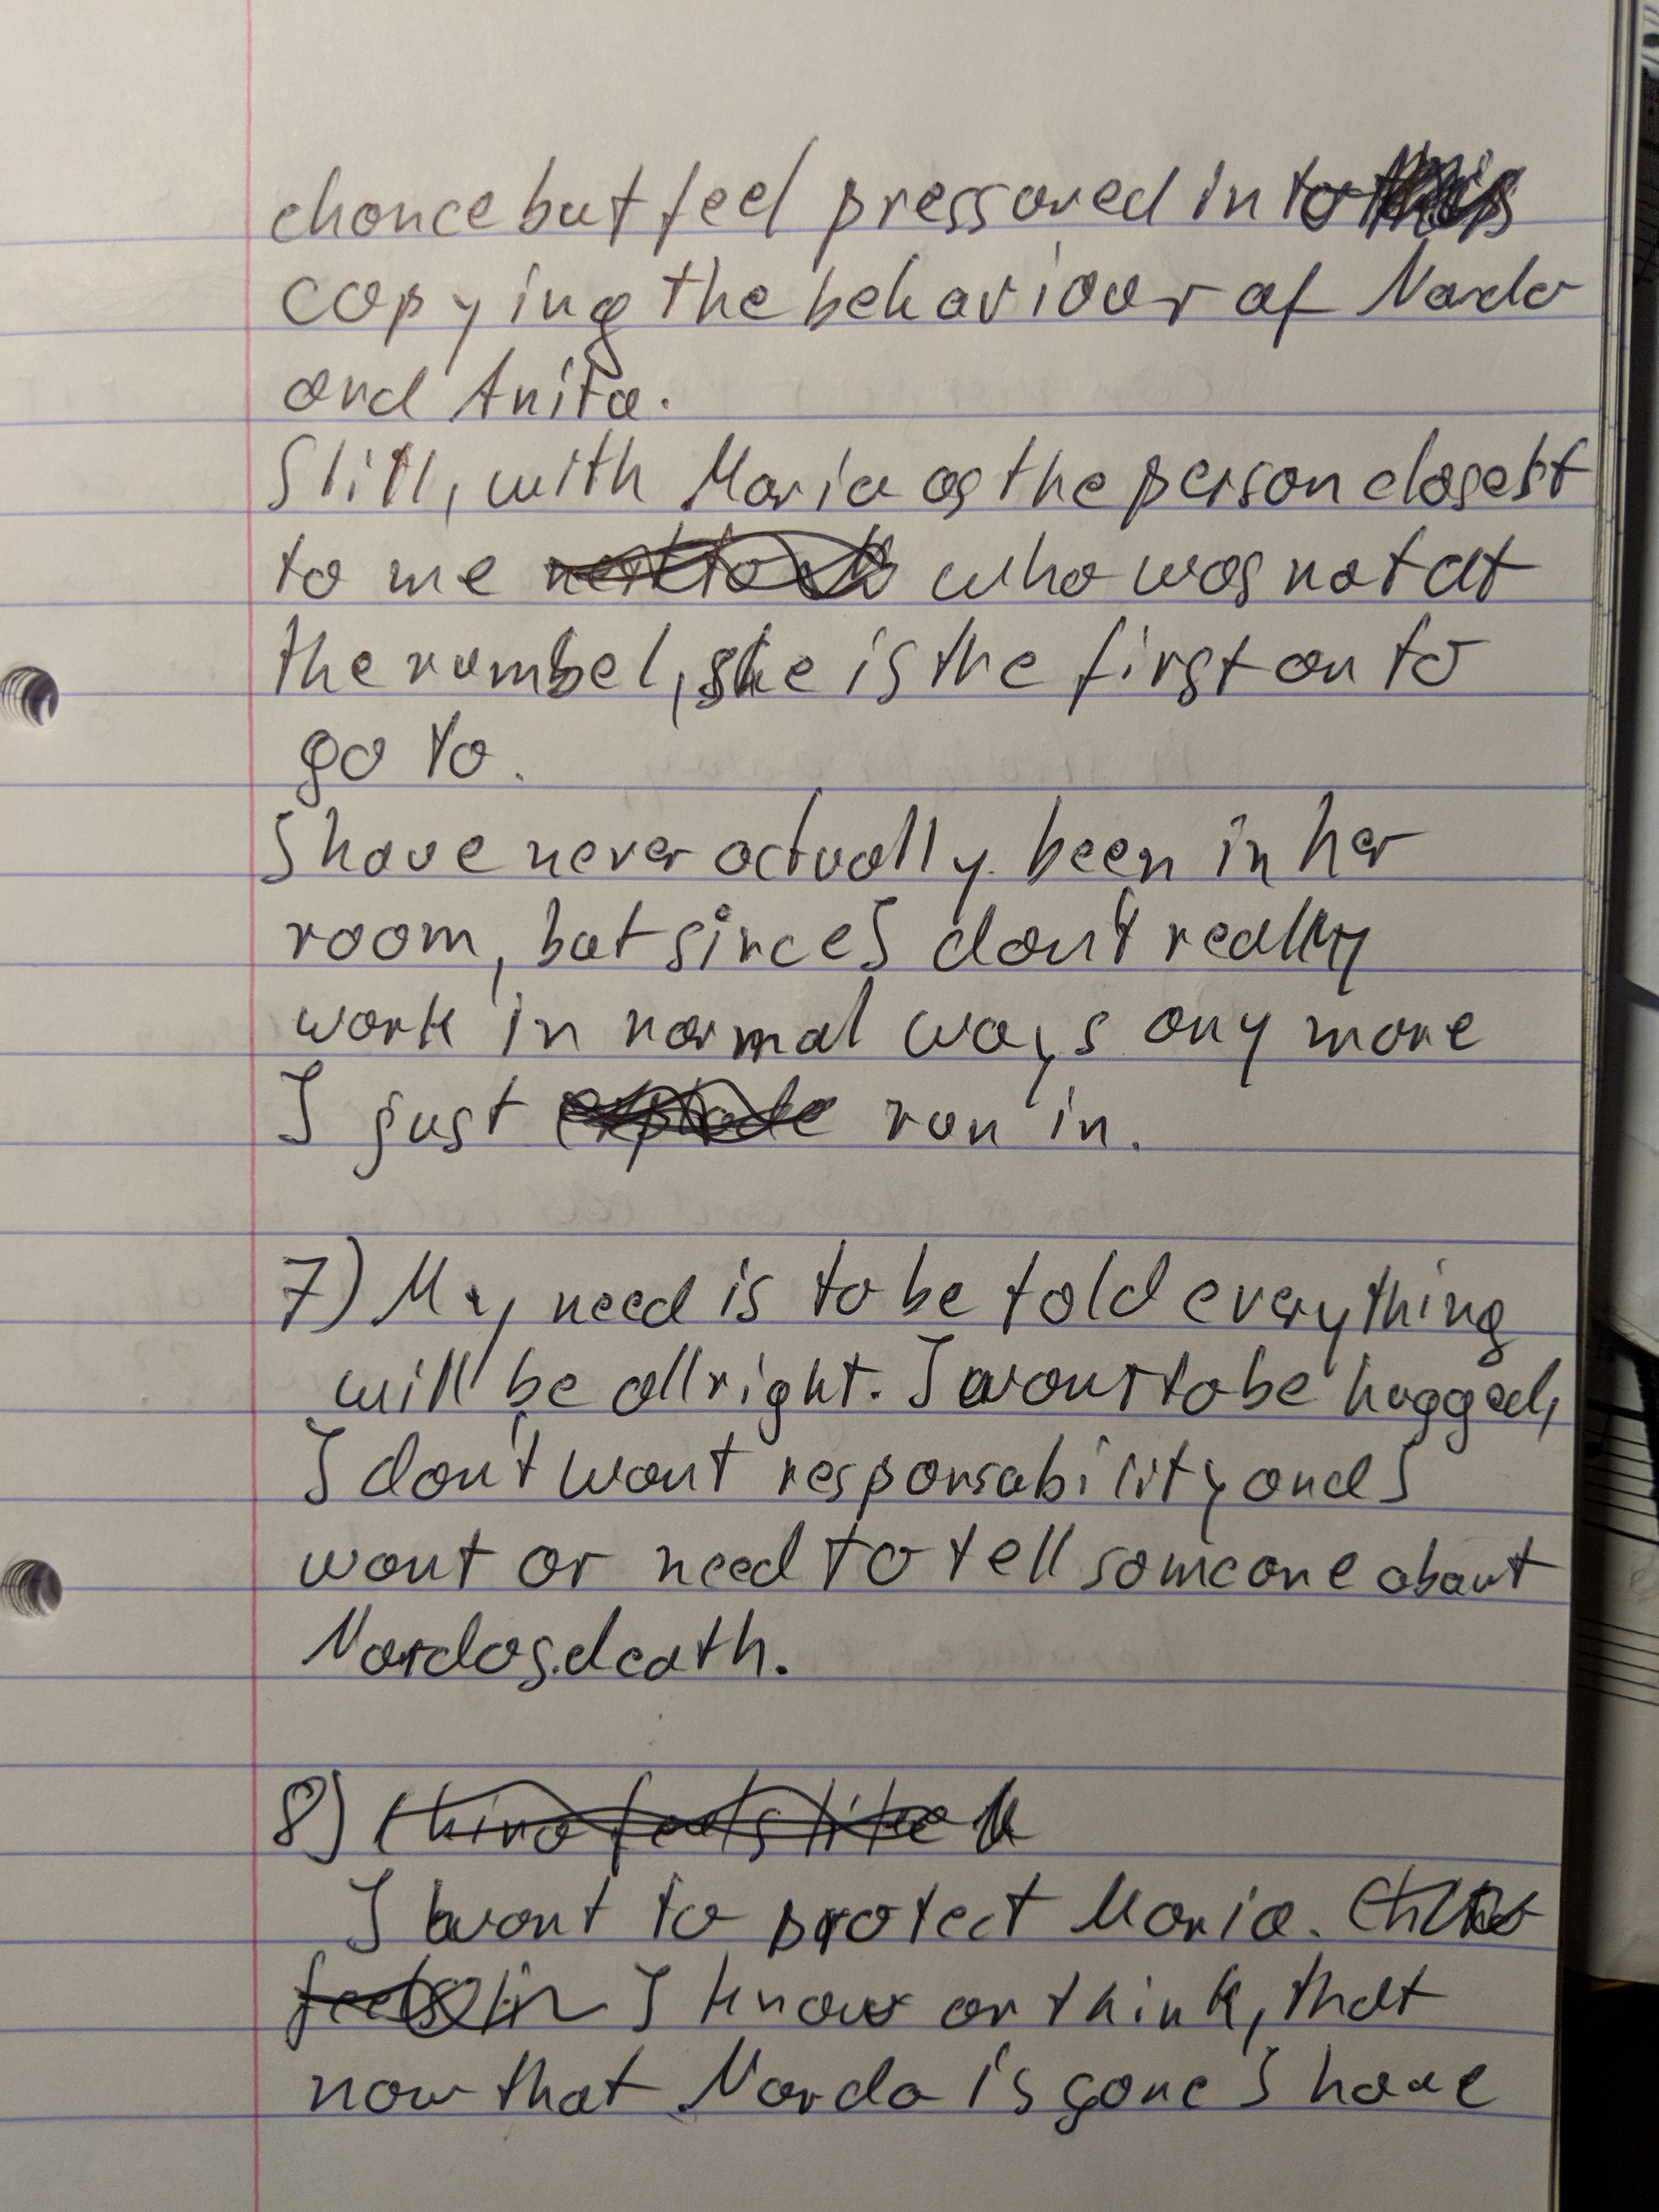 chance but feel pressored into this
copying the behaviour of Nardo
and Anita.
Still, with Maria as the person closest
to me next to who was not at
the rumbel, she is the first on to
go to.
I have never actually been in her
room, but since I don't really
work in normal ways any more
I just explode run in.
7) My need is to be told everything
will be allright. I want to be hugged,
I don't want responsability and I
want or need to tell someone about
Nardos death.
8) thino feels like
I want to protect Maria. Chino
feels lik I know or think, that
now that Nardo is gone I have